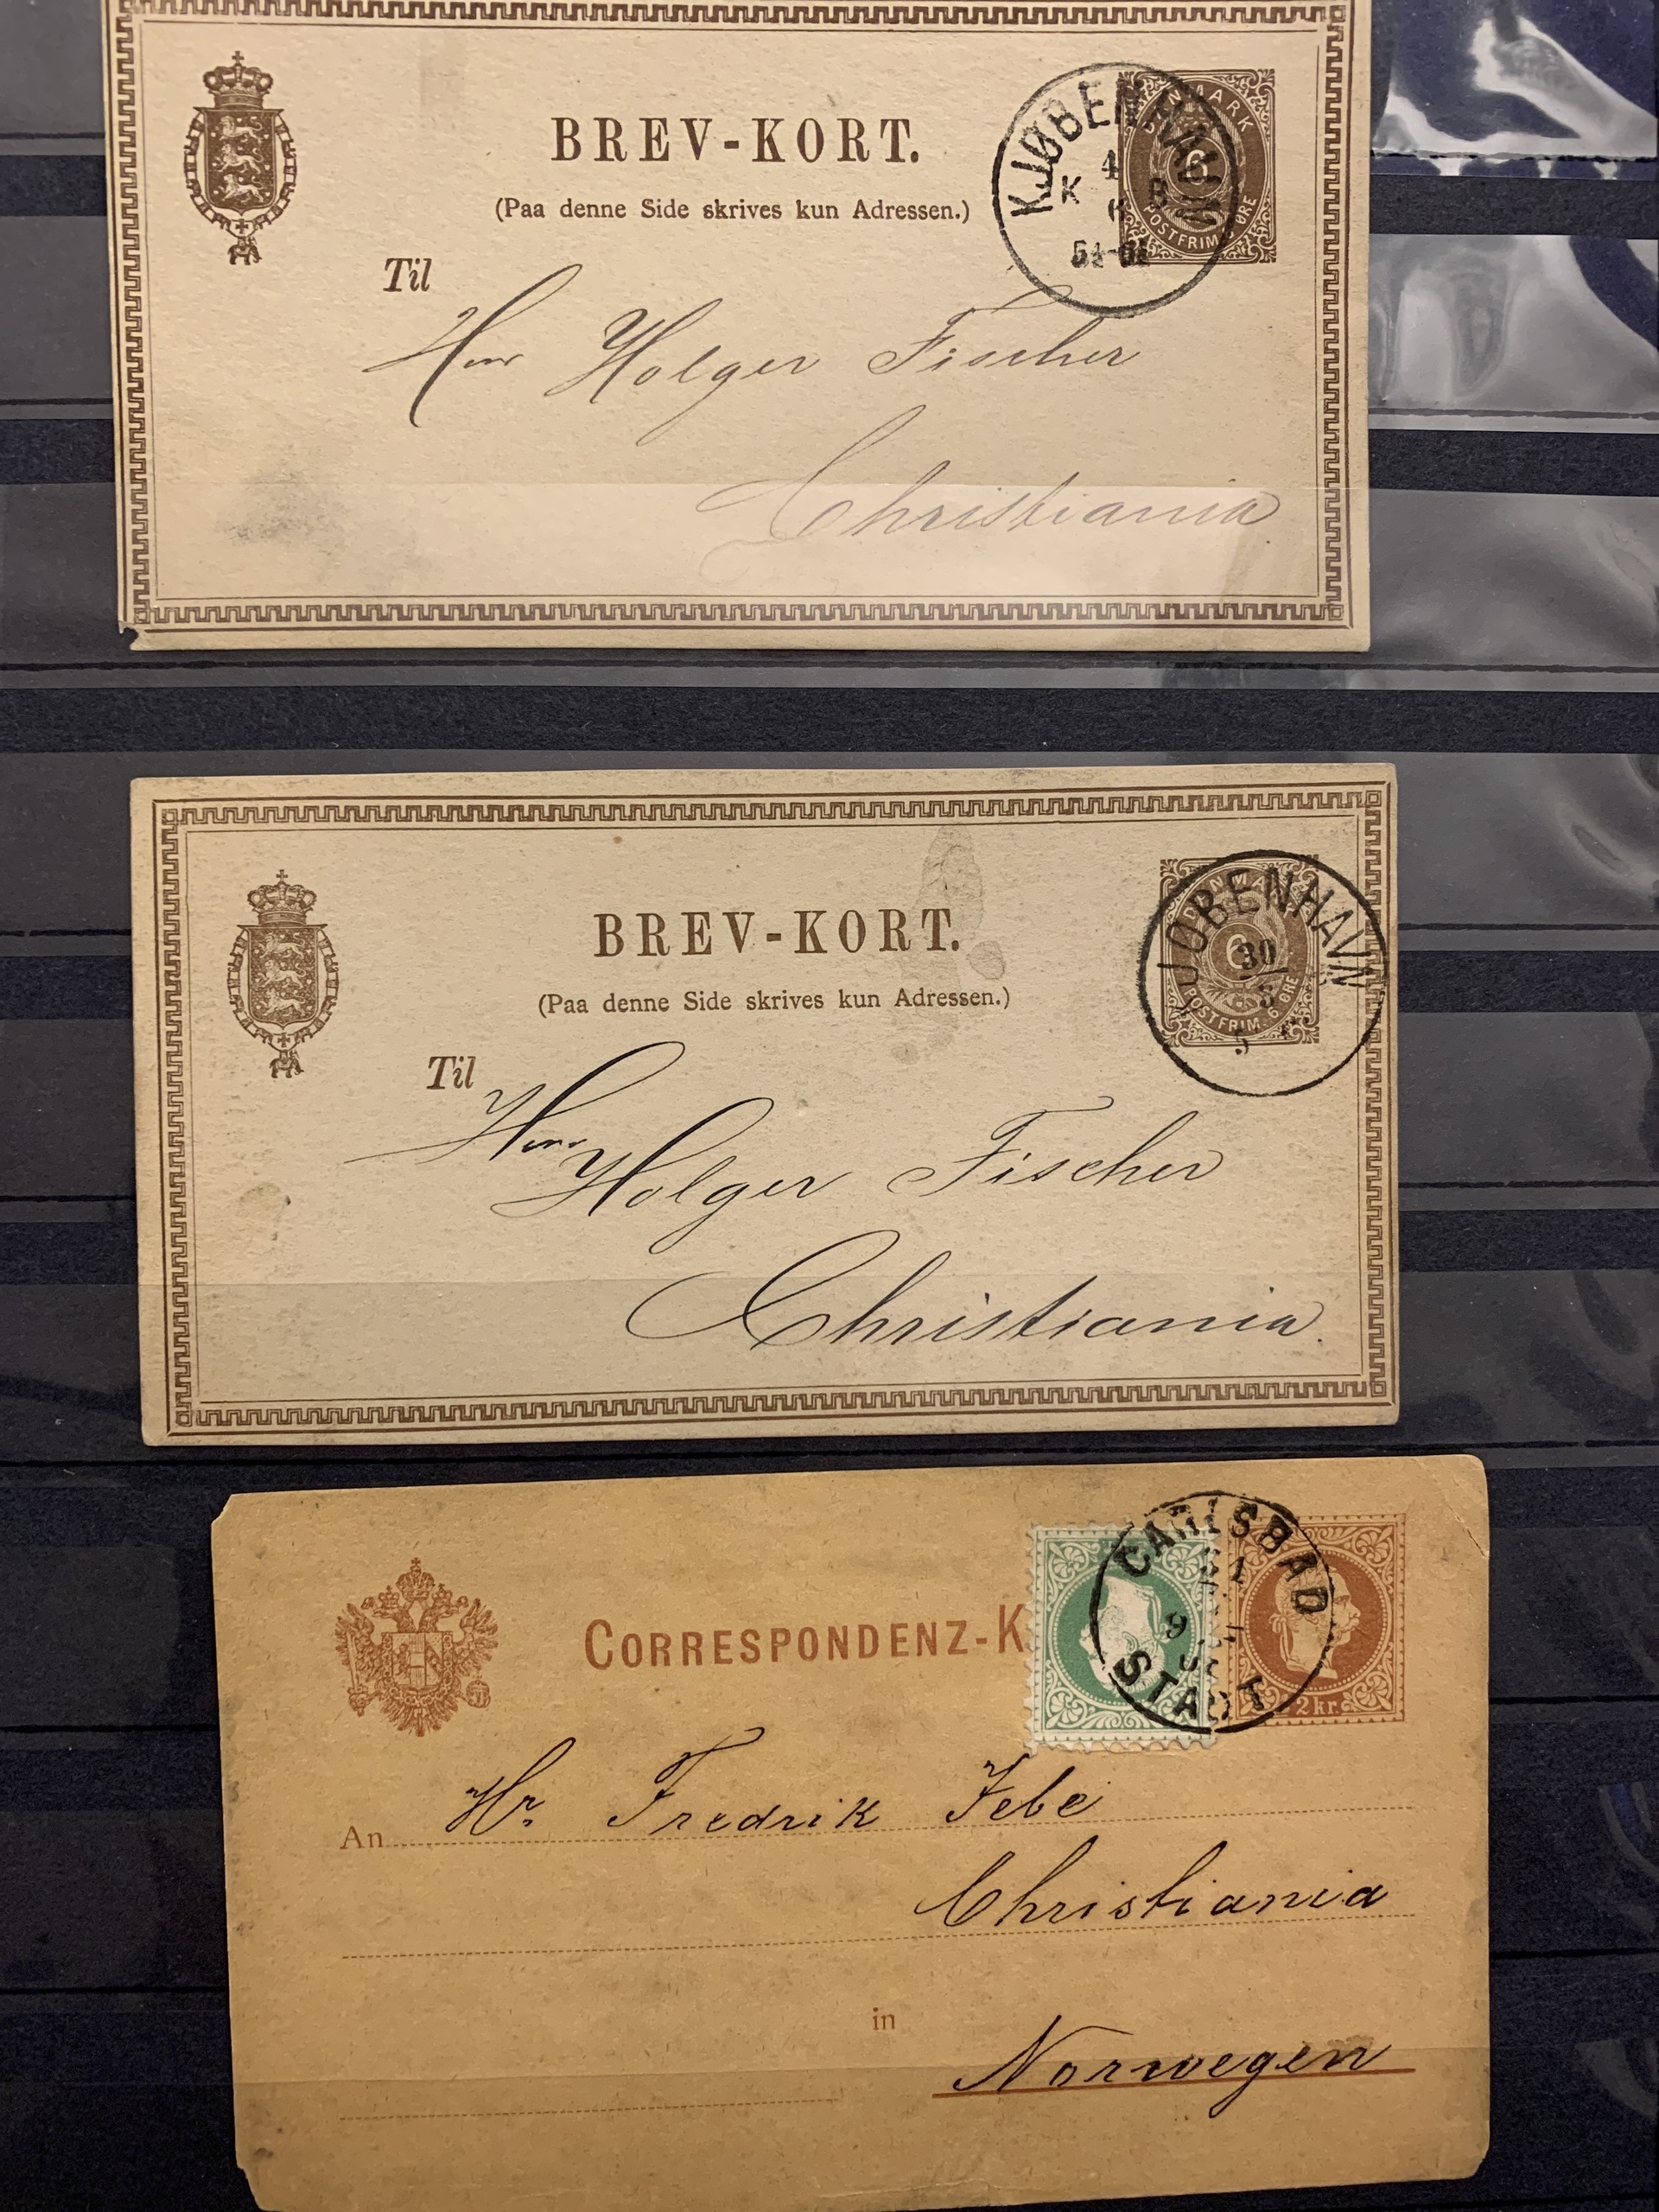 BREV-KORT.
(Paa denne Side skrives kun Adressen.)
KJØBENHAVN
4
K B
6
DANMARK
6
POSTFRIM. 6 ØRE
Til
Herr Holger Fischer
Christiania
BREV-KORT.
(Paa denne Side skrives kun Adressen.)
KJØBENHAVN
30
5
DANMARK
6
POSTFRIM. 6 ØRE
Til
Herr
Holger Fischer
Christiania.
CORRESPONDENZ-K
CARLSBAD
9
STADT
2 kr.
An Hr. Fredrik Jebe
Christiania
in
Norwegen